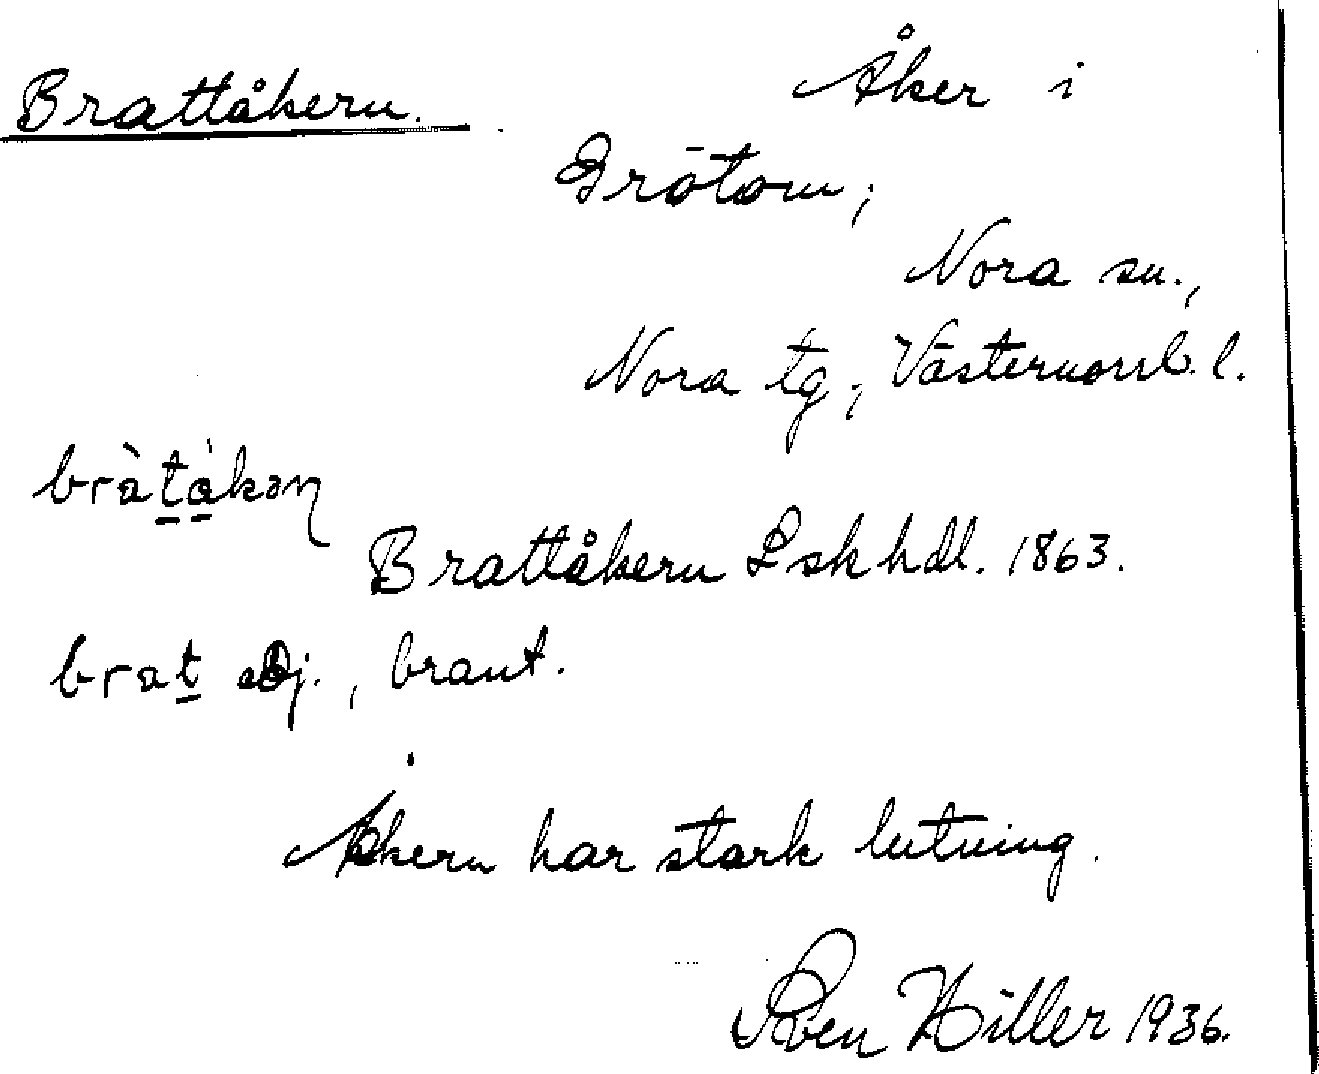 Brattåkern.
Åker i
Grötom;
Nora sn.,
Nora tg; Västernorrl. l.
bràtåkəɳ
Brattåkern Lskhdl. 1863.
brat adj., brant.
Åkern har stark lutning.
Sven Hiller 1936.